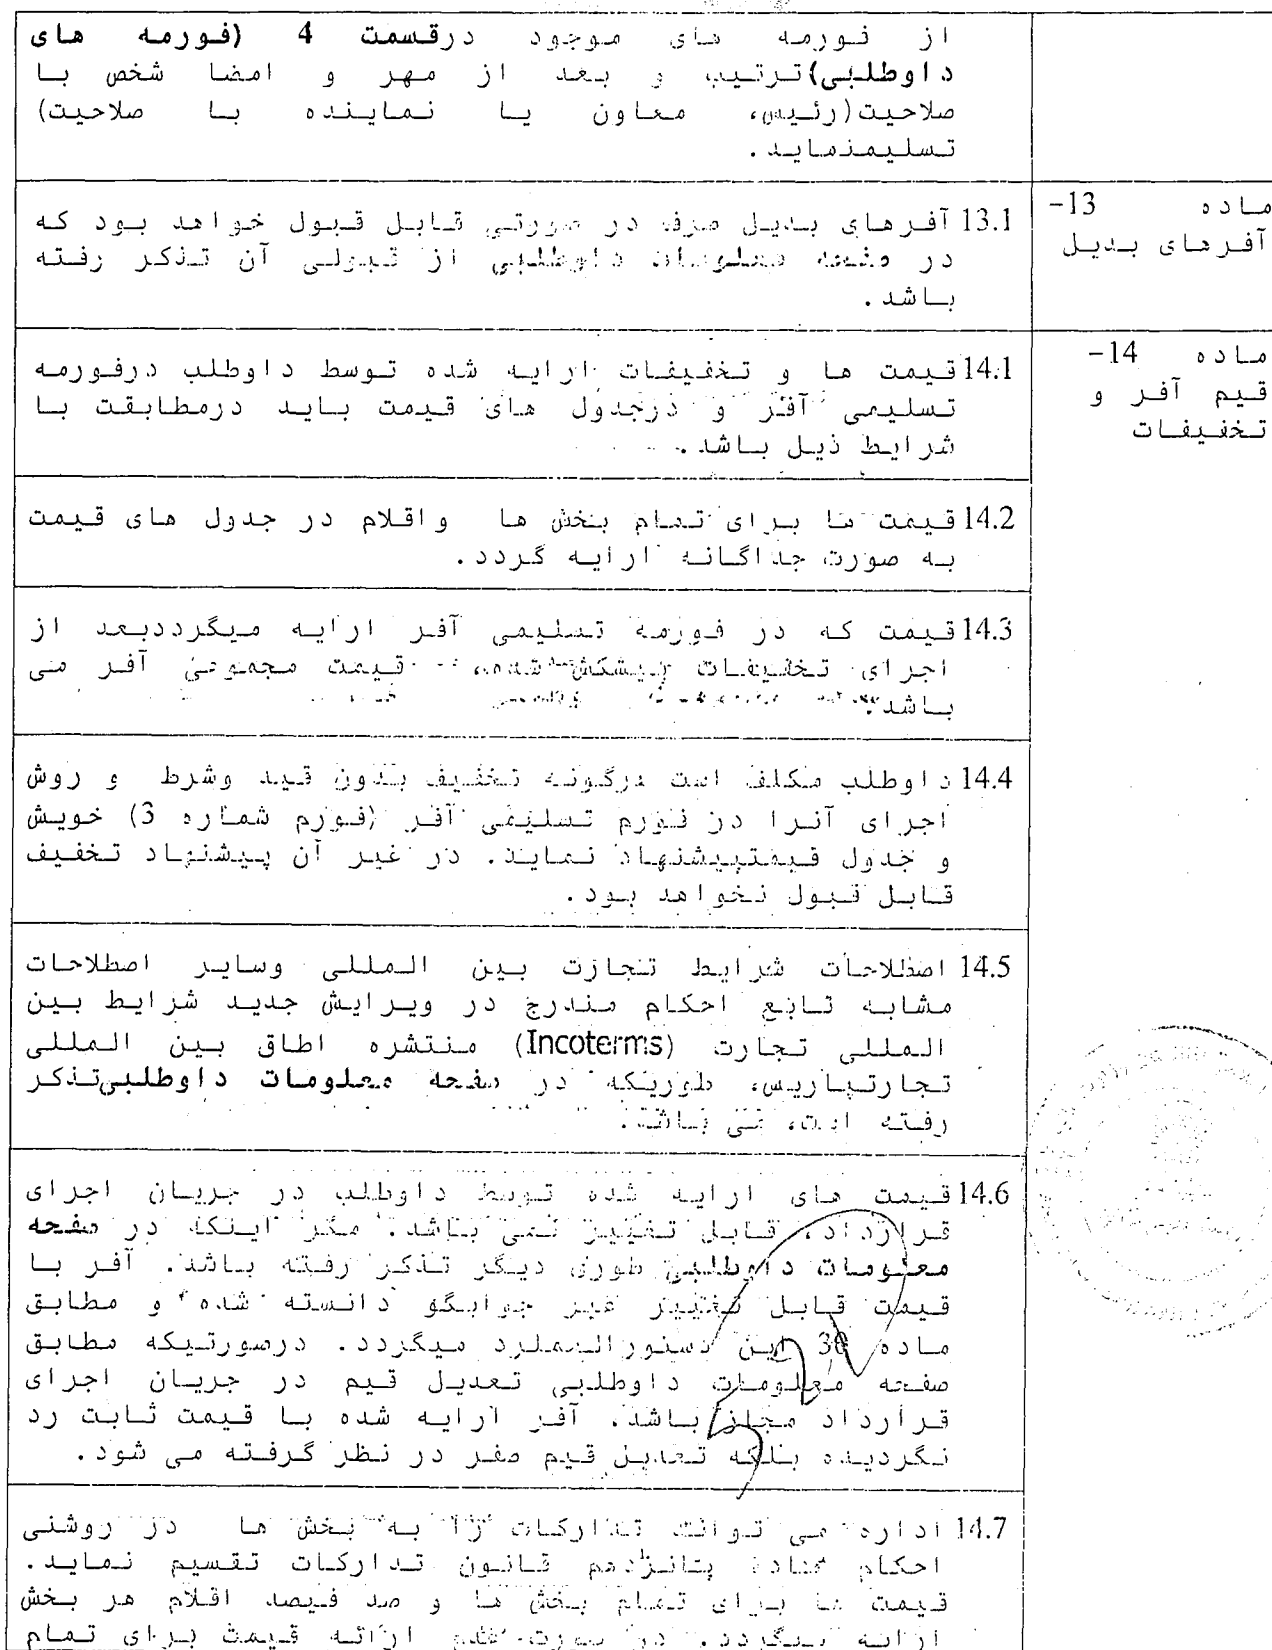 از فورمه های موجود درقسمت 4 (فورمه های
داوطلبی)ترتیب و بعد از مهر و امضا شخص با
صلاحیت(رئیس، معاون یا نماینده با صلاحیت)
تسلیمنماید.
ماده 13-
آفرهای بدیل
13.1 آفرهای بدیل صرف در صورتی قابل قبول خواهد بود که
در صفحه معلومات داوطلبی از قبولی آن تذکر رفته
باشد.
ماده 14-
قیم آفر و
تخفیفات
14.1 قیمت ها و تخفیفات ارایه شده توسط داوطلب درفورمه
تسلیمی آفر و درجدول های قیمت باید درمطابقت با
شرایط ذیل باشد.
14.2 قیمت ها برای تمام بخش ها واقلام در جدول های قیمت
به صورت جداگانه ارایه گردد.
14.3 قیمت که در فورمه تسلیمی آفر ارایه میگرددبعد از
اجرای تخفیفات پیشکش شده، قیمت مجموعی آفر می
باشد
14.4 داوطلب مکلف است هرگونه تخفیف بدون قید وشرط و روش
اجرای آنرا در فورم تسلیمی آفر (فورم شماره 3) خویش
و جدول قیمتپیشنهاد نماید. در غیر آن پیشنهاد تخفیف
قابل قبول نخواهد بود.
14.5 اصطلاحات شرایط تجارت بین المللی وسایر اصطلاحات
مشابه تابع احکام مندرج در ویرایش جدید شرایط بین
المللی تجارت (Incoterms) منتشره اطاق بین المللی
تجارتپاریس، طوریکه در صفحه معلومات داوطلبیتذکر
رفته است، می باشد.
14.6 قیمت های ارایه شده توسط داوطلب در جریان اجرای
قرارداد، قابل تغییر نمی باشد. مگر اینکه در صفحه
معلومات داوطلبی طوری دیگر تذکر رفته باشد. آفر با
قیمت قابل تغییر غیر جوابگو دانسته شده و مطابق
ماده 30 این دستورالعملرد میگردد. درصورتیکه مطابق
صفحه معلومات داوطلبی تعدیل قیم در جریان اجرای
قرارداد مجاز باشد. آفر ارایه شده با قیمت ثابت رد
نگردیده بلکه تعدیل قیم صفر در نظر گرفته می شود.
14.7 اداره می تواند تدارکات را به بخش ها در روشنی
احکام ماده پانزدهم قانون تدارکات تقسیم نماید.
قیمت ها برای تمام بخش ها و صد فیصد اقلام هر بخش
ارائه میگردد. در صورت عدم ارائه قیمت برای تمام